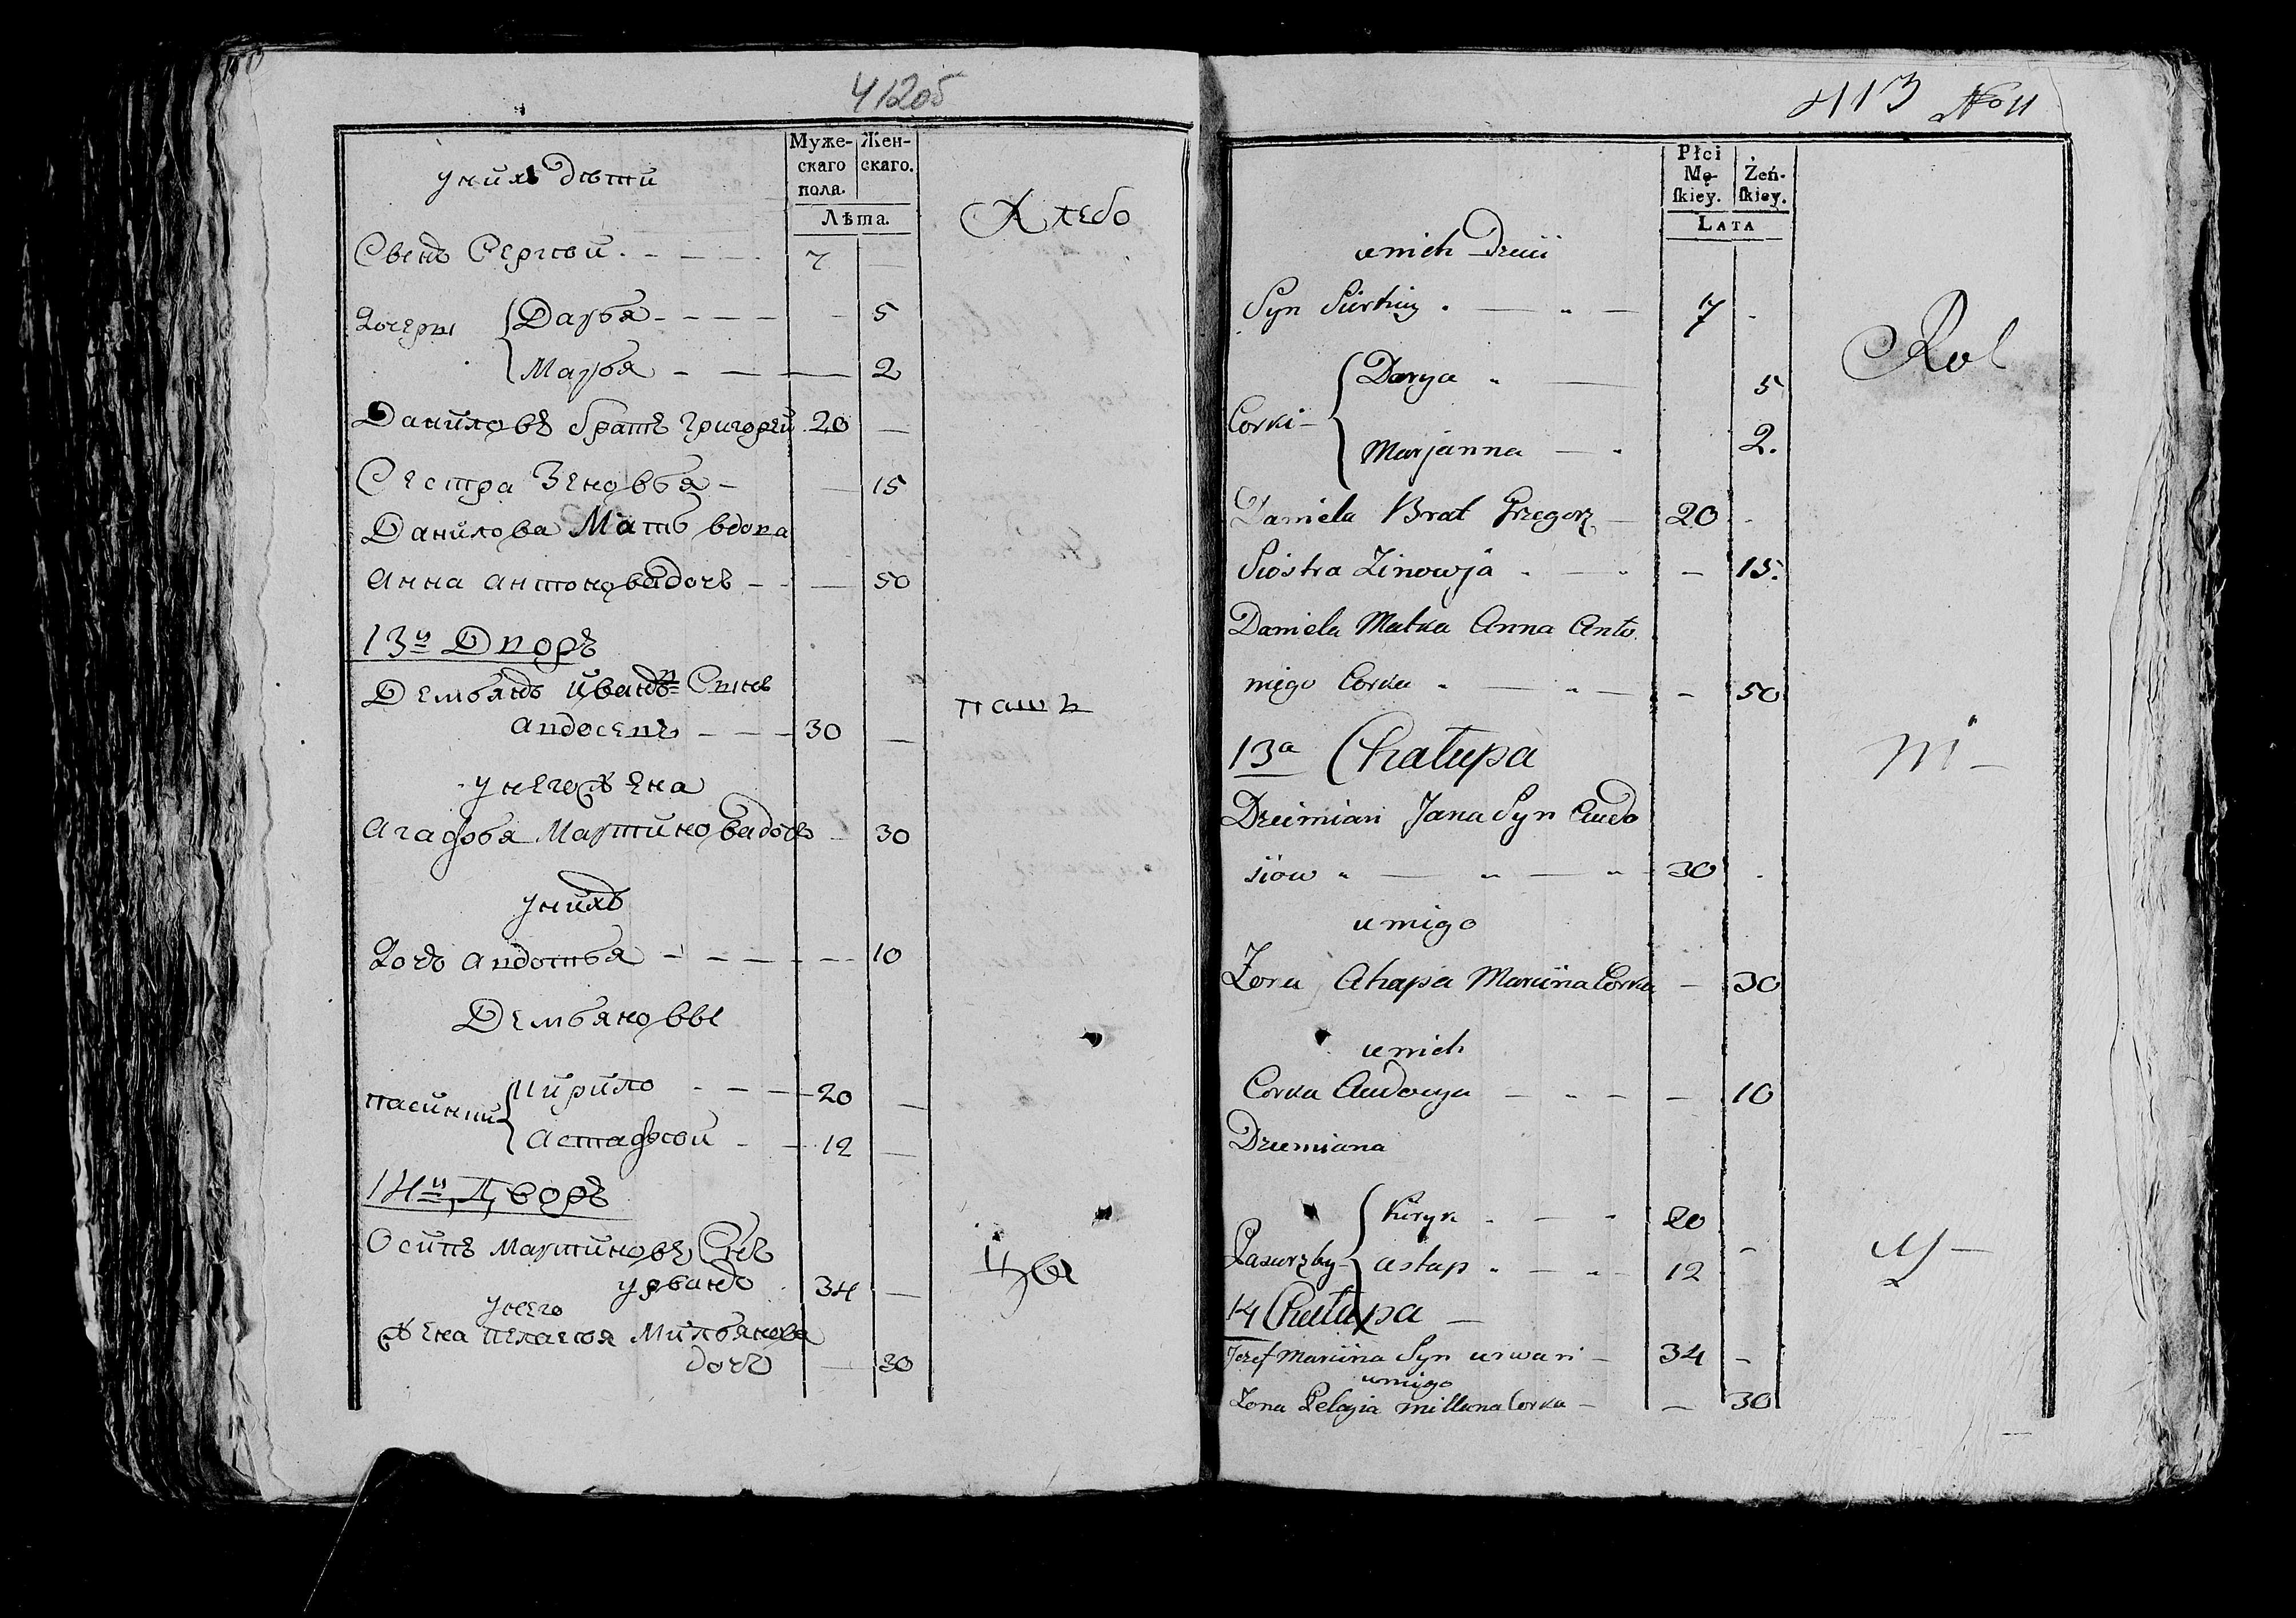 412об
Муже-
скаго
пола.
Жен-
скаго.
Лѣта.
у нихъ дѣти
Хлебо
Сергѣй 7 —
Дочеры
Дарья 5
Марья 2
Даниловъ братъ Григорей 20 —
Сестра Зеновья — 15
Данилова Мать вдова
Анна Антонова дочь — 50
13й Дворъ
Демьянъ Ивановъ Сынъ
Авдосевъ 30 —
паш
у него жена
Агафья Мартинова дочь — 30
у нихъ
Дочь Авдотья 10
Демьяновы
пасинки
Кирило 20 —
Астафей 12 —
14й Дворъ
Осипъ Мартиновъ Снъ
урванъ 34 —
цы
у него
жена пелагея Мильянова
дочь — 30
413 No 11
Płci
Mę-
ſkiey.
Żeń-
ſkiey.
LATA
u nich Dzieci
Rol
Syn Siergiey 7
Corki
Darya 5
Marjanna 2.
Daniela Brat Grzegorz 20
Siostra Zinowja — 15.
Daniela Matka Anna Anto
niego Corka — 50
13a Chałupa
ni —
Dziemian Jana Syn Audo
siow 30
u niego
Zona Ahapa Marcina Corka — 30
u nich
Corka Audocya — 10
Dziemiana
Pasierzby
Kiryła 20
Astap 12 —
cy —
14 Chałupa —
Jozef Marcina Syn urwan — 34 —
u niego
Zona Pelagia Millana Corka — 30